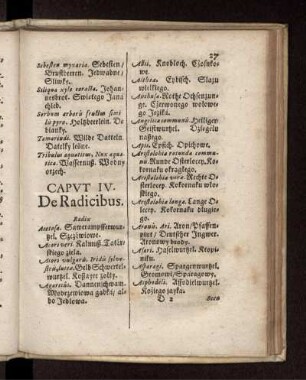 27
Sebesten myxaria. Sebesten/
Brustbeeren. Jedwabne/
Sliwki.
Siliqua xylo coralla. Johan-
nesbrot. Swietego Jana
chleb.
Sorbum arboris fructus simi-
lis pyro. Holtzbeerlein. De
bianki.
Tamarindi. Wilde Datteln.
Datelki lesne.
Tribulus aquaticus, Nux aqua-
tica. Wassernuß. Wodny
orzech.
CAPVT IV.
De Radicibus.
Radix
Acetosa. Sawerampfferwur-
tzel. Szczawiowe.
Acori veri. Kalmuß. Tatar-
skiego ziela.
Acori vulgaris.
Gelb Schwertel-
wurtzel. Kosaczec żolty.
Allii. Knobloch. Czosnko-
we.
Althææ. Eybisch. Slazu
wielkiego.
Anchusæ. Rothe Ochsenzun-
ge. Czerwonego wolowe-
go Jezyka.
Angelica communis. Heiligen
Geistwurtzel. Dziegielu
naszego.
Apii. Epffich. Opichowe.
Aristolochia rotunda commu-
nis Runde Osterlocey. Ko-
kornaku okraglego.
Aristolochia vera. Rechte O-
sterlocey. Kokornaku wlo-
skiego.
Aristolochia longa. Lange Oster-
locey. Kokornaku dlugie-
go.
Aronis, Ari. Aron/Pfaffen-
pint/ Deutscher Ingwer.
Aronawy brody.
Asari. Haselwurtzel. Kopy-
tniku.
Asparagi. Spargenwurtzel.
Gromowi/ Sparagowy.
Asphodeli. Affodielwurtzel.
Koziego jayka.
D 2